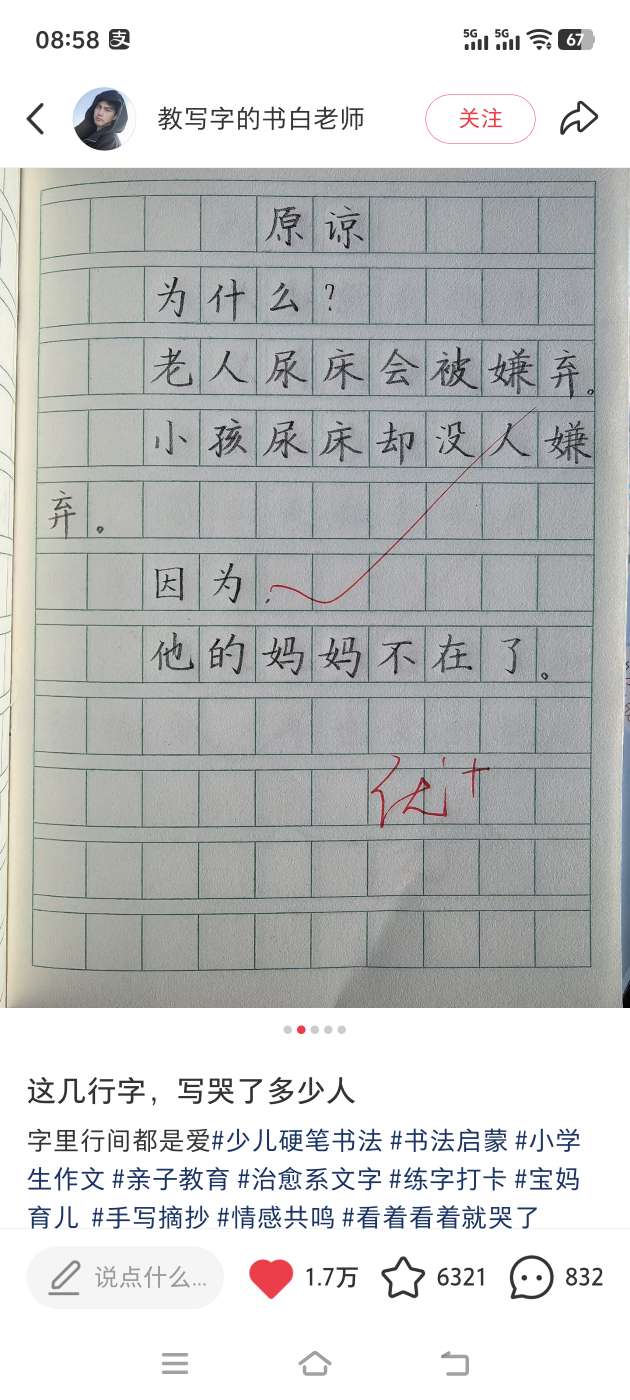 08:58 支
5G 5G 67
教写字的书白老师 关注
原谅
为什么?
老人尿床会被嫌弃。
小孩尿床却没人嫌
弃。
因为
他的妈妈不在了。
优+
这几行字，写哭了多少人
字里行间都是爱#少儿硬笔书法 #书法启蒙 #小学
生作文 #亲子教育 #治愈系文字 #练字打卡 #宝妈
育儿 #手写摘抄 #情感共鸣 #看着看着就哭了
说点什么... 1.7万 6321 832